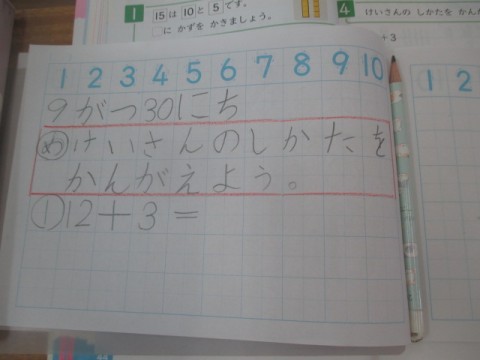 1 15は10と5です。
□に かずを かきましょう。
4 けいさんの しかたを かん
+3
1 2 3 4 5 6 7 8 9 10
9がつ30にち
め けいさんのしかたを
かんがえよう。
① 12+3=
1 2